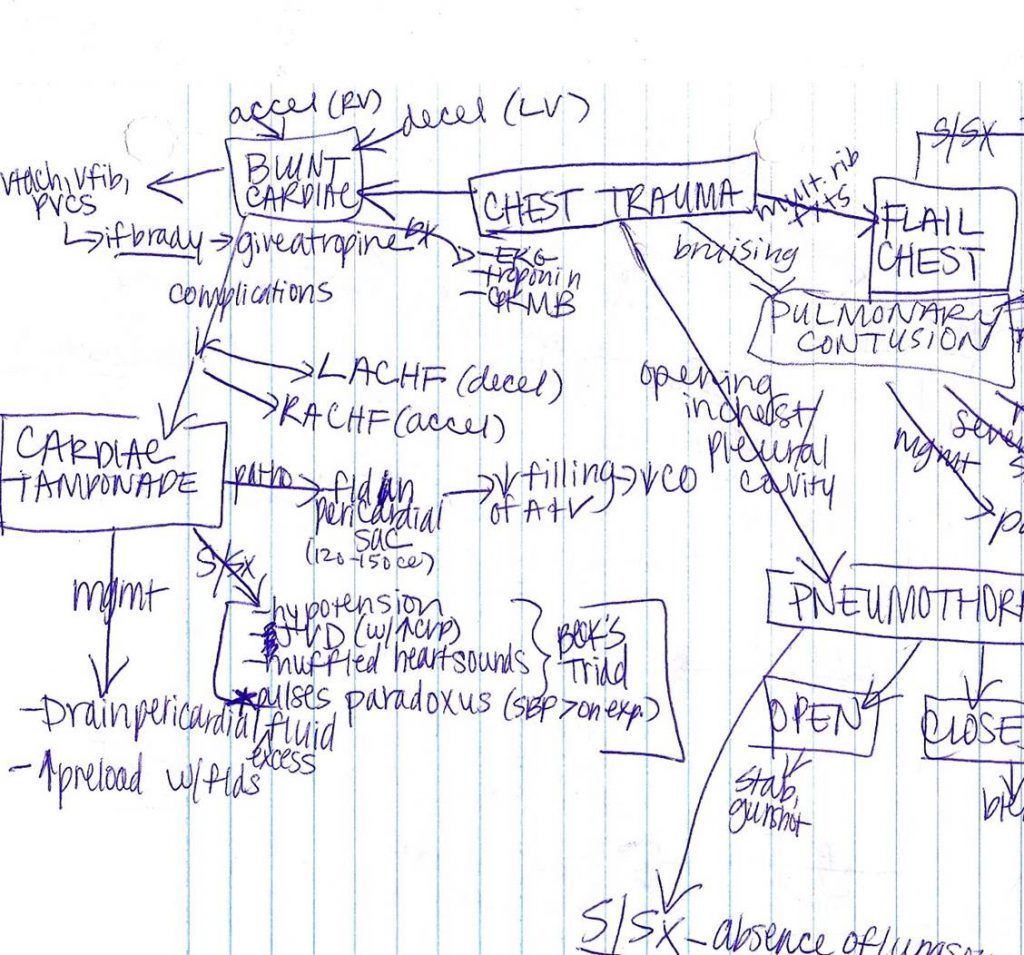 accel (RV)
decel (LV)
BLUNT
CARDIAC
vtach, vfib,
PVCS
if brady → give atropine
dx
- EKG
- troponin
- CPKMB
complications
→ LACHF (decel)
→ RACHF (accel)
CHEST TRAUMA
mult. rib
fxts
S/SX
FLAIL
CHEST
bruising
PULMONARY
CONTUSION
mgmt
seve
opening
in chest/
pleural
cavity
CARDIAC
TAMPONADE
patho
fld in
pericardial
sac
(120-150cc)
→ ↓ filling → ↓ CO
of A + V
mgmt
S/Sx
- hypotension
- JVD (w/ ↑ CVP)
- muffled heart sounds
BECK'S
Triad
* pulses paradoxus (SBP > on exp.)
- Drain pericardial fluid
excess
- ↑ preload w/ flds
PNEUMOTHOR
OPEN
CLOSE
stab,
gunshot
S/SX - absence of lung